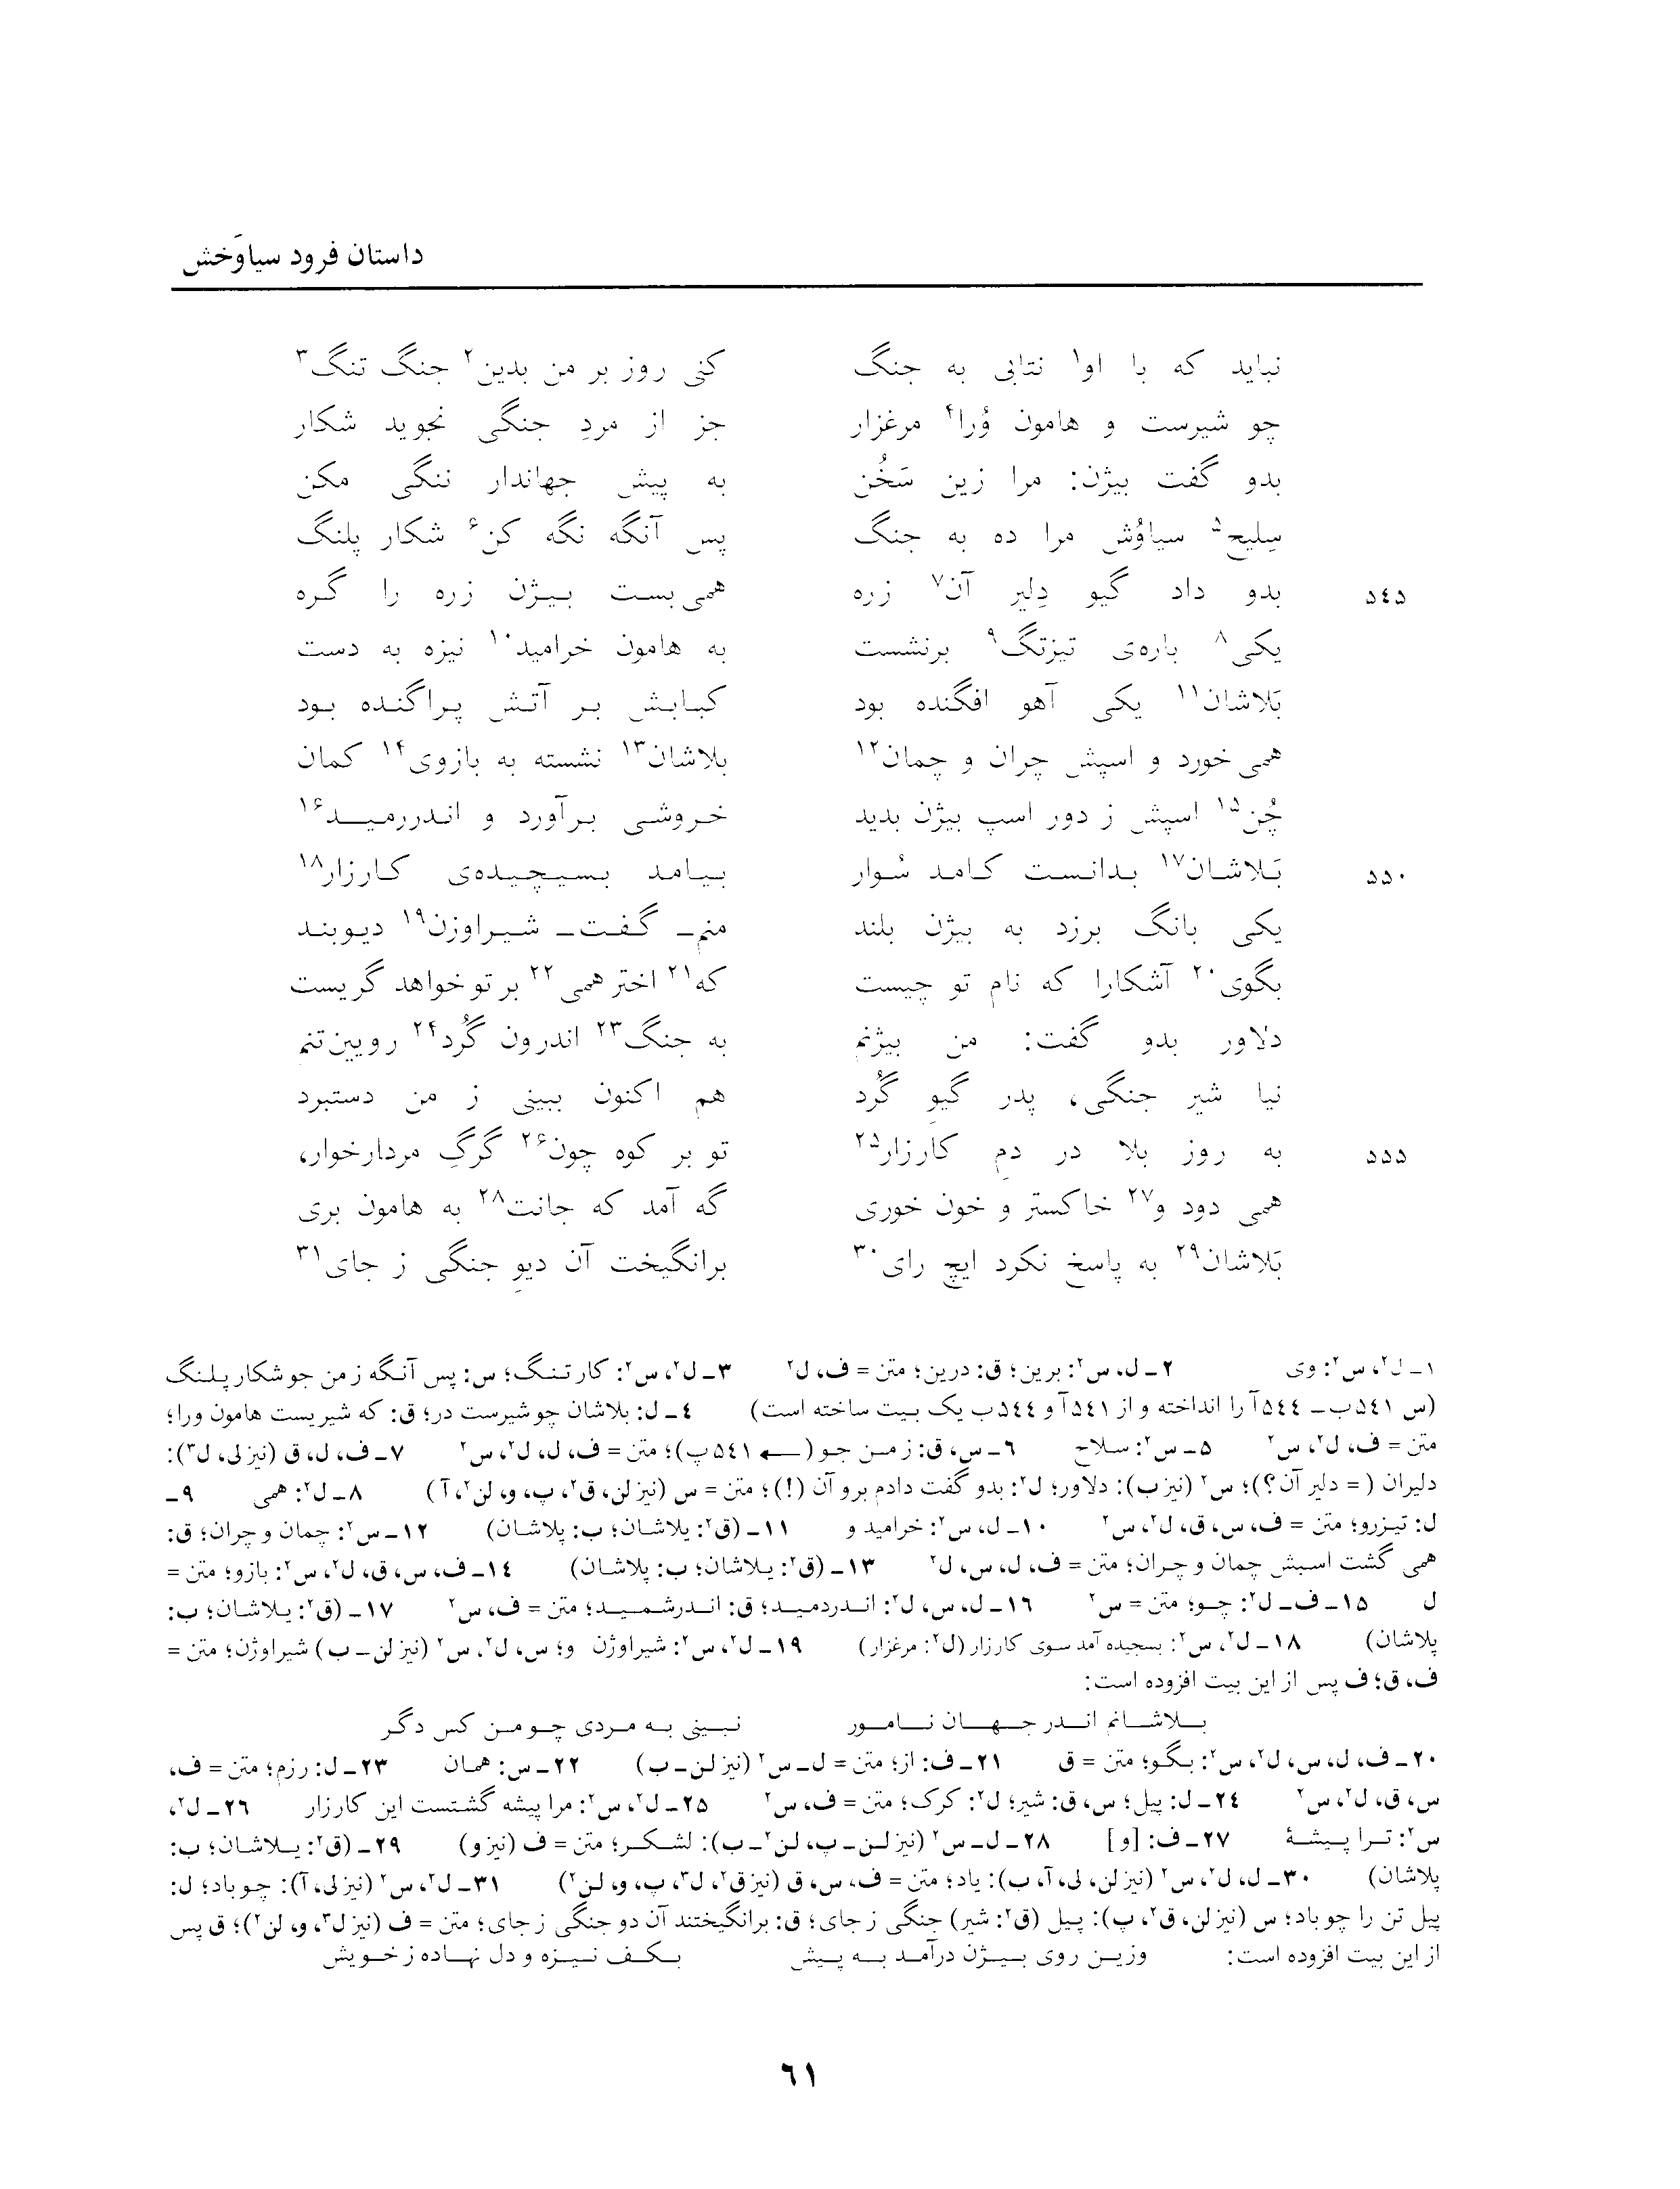 داستان فرود سیاوَخش
نباید که با او۱ نتابی به جنگ کنی روز بر من بدین۲ جنگ تنگ۳
چو شیرست و هامون وُرا۴ مرغزار جز از مردِ جنگی نجوید شکار
بدو گفت بیژن: مرا زین سَخُن به پیش جهاندار ننگی مکن
سِلیح۵ سیاوُش مرا ده به جنگ پس آنگه نگه کن۶ شکار پلنگ
۵۴۵ بدو داد گیو دِلیر آن۷ زره همی‌بست بیژن زره را گره
یکی۸ باره‌ی تیزتگ۹ برنشست به هامون خرامید۱۰ نیزه به دست
بَلاشان۱۱ یکی آهو افگنده بود کبابش بر آتش پراگنده بود
همی خورد و اسپش چران و چمان۱۲ بلاشان۱۳ نشسته به بازوی۱۴ کمان
چُن۱۵ اسپش ز دور اسپ بیژن بدید خروشی برآورد و اندررمید۱۶
۵۵۰ بَلاشان۱۷ بدانست کامد سُوار بیامد بسیچیده‌ی کارزار۱۸
یکی بانگ برزد به بیژن بلند منم ـ گفت ـ شیراوزن۱۹ دیوبند
بگوی۲۰ آشکارا که نام تو چیست که۲۱ اختر همی۲۲ بر تو خواهد گریست
دلاور بدو گفت: من بیژنم به جنگ۲۳ اندرون گُرد۲۴ رویین‌تنم
نیا شیر جنگی، پدر گیوِ گُرد هم اکنون ببینی ز من دستبرد
۵۵۵ به روز بلا در دمِ کارزار۲۵ تو بر کوه چون۲۶ گرگِ مردارخوار،
همی دود و۲۷ خاکستر و خون خوری گه آمد که جانت۲۸ به هامون بری
بَلاشان۲۹ به پاسخ نکرد ایچ رای۳۰ برانگیخت آن دیوِ جنگی ز جای۳۱
۱ـ ل۲، س۲: وی ۲ـ ل، س۲: برین؛ ق: درین؛ متن = ف، ل۲ ۳ـ ل۲، س۲: کار تنگ؛ س: پس آنگه ز من جو شکار پلنگ
(س ۵۴۱ب ـ ۵۴۴آ را انداخته و از ۵۴۱آ و ۵۴۴ب یک بیت ساخته است) ۴ـ ل: بلاشان چو شیرست در؛ ق: که شیریست هامون ورا؛
متن = ف، ل۲، س۲ ۵ـ س۲: سلاح ۶ـ س، ق: ز من جو (← ۵۴۱پ)؛ متن = ف، ل، ل۲، س۲ ۷ـ ف، ل، ق (نیز لی، ل۳):
دلیران (= دلیر آن؟)؛ س۲ (نیز ب): دلاور؛ ل۲: بدو گفت دادم برو آن (!)؛ متن = س (نیز لن، ق۲، پ، و، لن۲، آ) ۸ـ ل۲: همی ۹ـ
ل: تیزرو؛ متن = ف، س، ق، ل۲، س۲ ۱۰ـ ل، س۲: خرامید و ۱۱ـ (ق۲: یلاشان؛ ب: پلاشان) ۱۲ـ س۲: چمان و چران؛ ق:
همی گشت اسبش چمان و چران؛ متن = ف، ل، س، ل۲ ۱۳ـ (ق۲: یلاشان؛ ب: پلاشان) ۱۴ـ ف، س، ق، ل۲، س۲: بازو؛ متن =
ل ۱۵ـ ف ـ ل۲: چو؛ متن = س۲ ۱۶ـ ل، س، ل۲: اندردمید؛ ق: اندرشمید؛ متن = ف، س۲ ۱۷ـ (ق۲: یلاشان؛ ب:
پلاشان) ۱۸ـ ل۲، س۲: بسجیده آمد سوی کارزار (ل۲: مرغزار) ۱۹ـ ل۲، س۲: شیراوژن و؛ س، ل۲، س۲ (نیز لن ـ ب) شیراوژن؛ متن =
ف، ق؛ ف پس از این بیت افزوده است:
بلاشانم اندر جهان نامور نبینی به مردی چو من کس دگر
۲۰ـ ف، ل، س، ل۲، س۲: بگو؛ متن = ق ۲۱ـ ف: از؛ متن = ل ـ س۲ (نیز لن ـ ب) ۲۲ـ س: همان ۲۳ـ ل: رزم؛ متن = ف،
س، ق، ل۲، س۲ ۲۴ـ ل: پیل؛ س، ق: شیر؛ ل۲: کرک؛ متن = ف، س۲ ۲۵ـ ل۲، س۲: مرا پیشه گشتست این کارزار ۲۶ـ ل۲،
س۲: ترا پیشهٔ ۲۷ـ ف: [و] ۲۸ـ ل ـ س۲ (نیز لن ـ پ، لن۲ ـ ب): لشکر؛ متن = ف (نیز و) ۲۹ـ (ق۲: یلاشان؛ ب:
پلاشان) ۳۰ـ ل، ل۲، س۲ (نیز لن، لی، آ، ب): یاد؛ متن = ف، س، ق (نیز ق۲، ل۳، پ، و، لن۲) ۳۱ـ ل۲، س۲ (نیز لی، آ): چو باد؛ ل:
پیل تن را چو باد؛ س (نیز لن، ق۲، پ): پیل (ق۲: شیر) جنگی ز جای؛ ق: برانگیختند آن دو جنگی ز جای؛ متن = ف (نیز ل۳، و، لن۲)؛ ق پس
از این بیت افزوده است: وزین روی بیژن درآمد به پیش بکف نیزه و دل نهاده ز خویش
۶۱